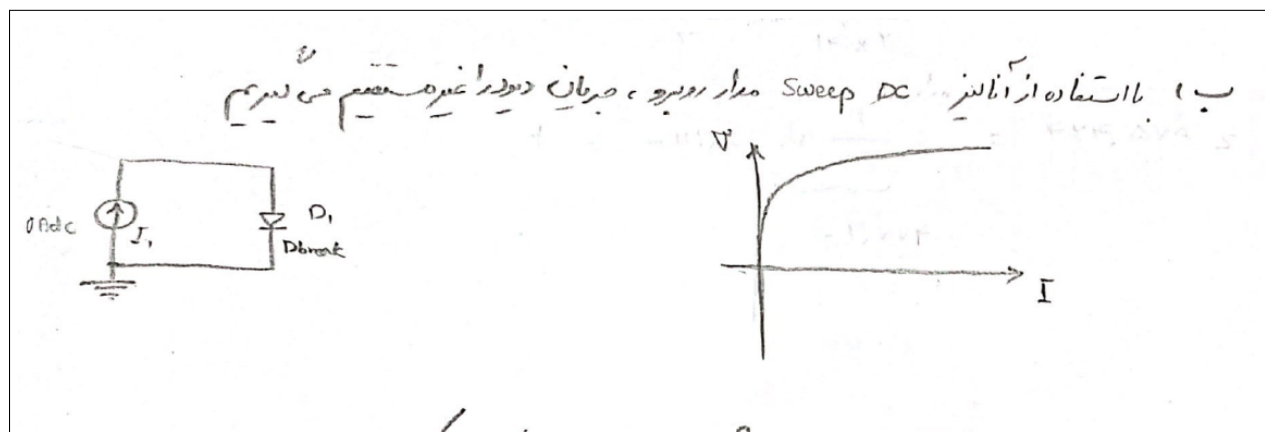 ب) با استفاده از آنالیز DC Sweep مدار روبرو، جریان دیود را غیره مستقیم می‌گیریم
0Adc
I₁
D₁
Dbreak
V
I